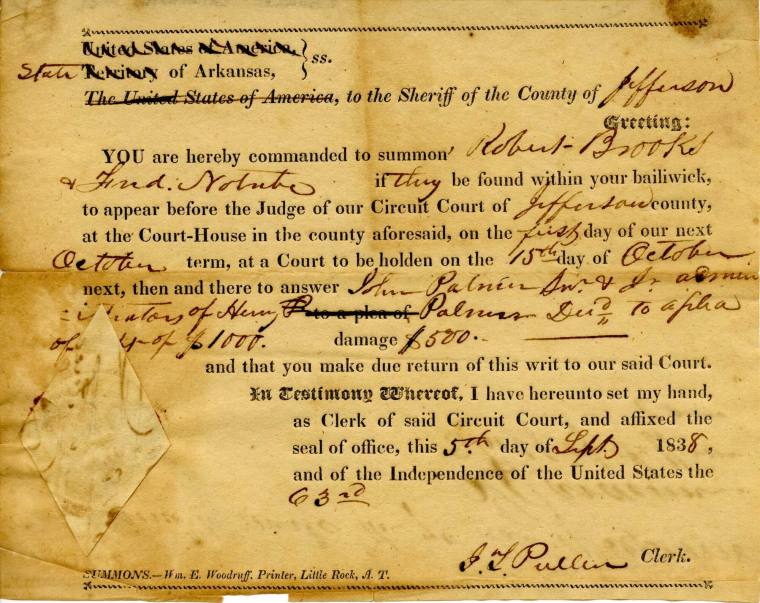 United States of America, } ss.
State Territory of Arkansas,
The United States of America, to the Sheriff of the County of Jefferson
Greeting:
YOU are hereby commanded to summon Robert Brooks
& Fred. Notrebe if they be found within your bailiwick,
to appear before the Judge of our Circuit Court of Jefferson county,
at the Court-House in the county aforesaid, on the first day of our next
October term, at a Court to be holden on the 15th day of October
next, then and there to answer John Palmer Snr. & Jr. admin
istrators of Henry P to a plea of, Palmer Decd to a plea
of of $1000. damage $500.
and that you make due return of this writ to our said Court.
In Testimony Whereof, I have hereunto set my hand,
as Clerk of said Circuit Court, and affixed the
seal of office, this 5th day of Sept. 1838,
and of the Independence of the United States the
63rd
J. T. Pullen Clerk.
SUMMONS.—Wm. E. Woodruff, Printer, Little Rock, A. T.